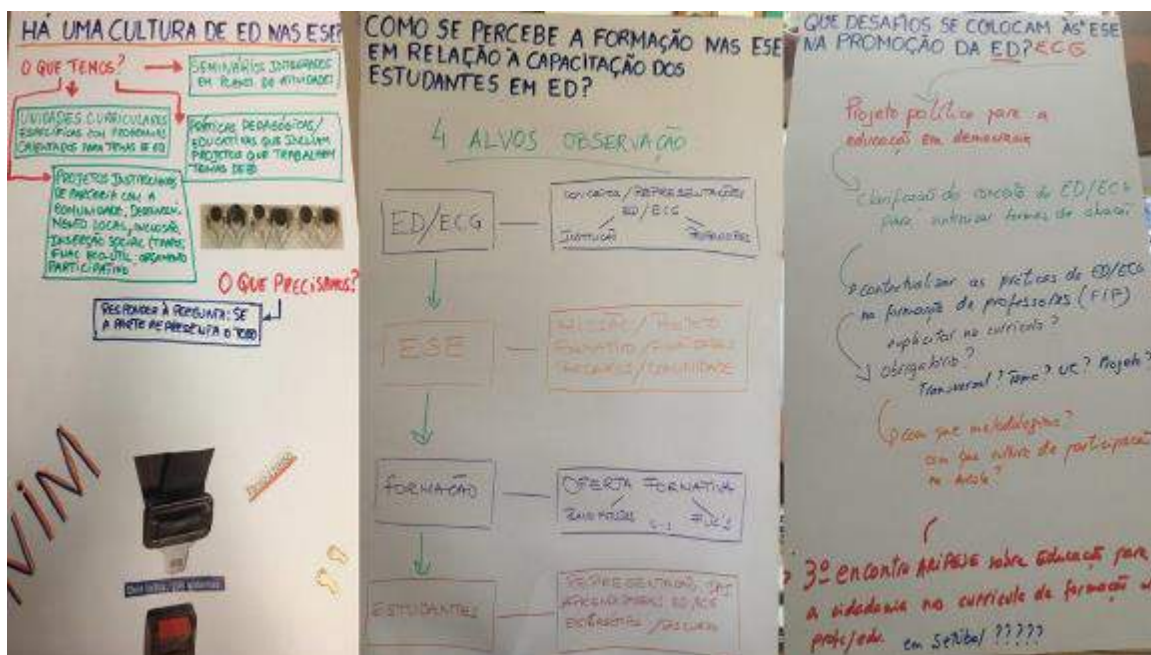 HÁ UMA CULTURA DE ED NAS ESE?
O QUE TEMOS?
SEMINÁRIOS INTEGRADOS
EM PLANOS DE ATIVIDADES
UNIDADES CURRICULARES
ESPECÍFICAS COM PROGRAMAS
ORIENTADOS PARA TEMAS DE ED
PRÁTICAS PEDAGÓGICAS/
EDUCATIVAS QUE INCLUAM
PROJETOS QUE TRABALHAM
TEMAS DE ED
PROJETOS
DE PARCERIA COM A
COMUNIDADE, DESENVOLVI-
MENTO LOCAL, INCLUSÃO,
INSERÇÃO SOCIAL
ORÇAMENTO
PARTICIPATIVO
O QUE PRECISAMOS?
RESPONDER À PERGUNTA: SE
A PARTE REPRESENTA O TODO
COMO SE PERCEBE A FORMAÇÃO NAS ESE
EM RELAÇÃO À CAPACITAÇÃO DOS
ESTUDANTES EM ED?
4 ALVOS OBSERVAÇÃO
ED/ECG
CONCEITOS/REPRESENTAÇÕES
ED/ECG
INSTITUIÇÃO
ESE
MISSÃO/PROJETO
FORMATIVO
/COMUNIDADE
FORMAÇÃO
OFERTA FORMATIVA
ESTUDANTES
QUE DESAFIOS SE COLOCAM ÀS ESE
NA PROMOÇÃO DA ED? ECG
Projeto político para a
educação em democracia
Clarificação do conceito de ED/ECG
para formas de
contextualizar as práticas de ED/ECG
na formação de professores (FIP)
explicitar no currículo?
obrigatório?
Transversal? Tema? UC? Projeto?
com que metodologias?
com que cultura de participação
3º encontro ARIPESE sobre Educação para
a cidadania no currículo da formação
prof/edu. em Setúbal ?????